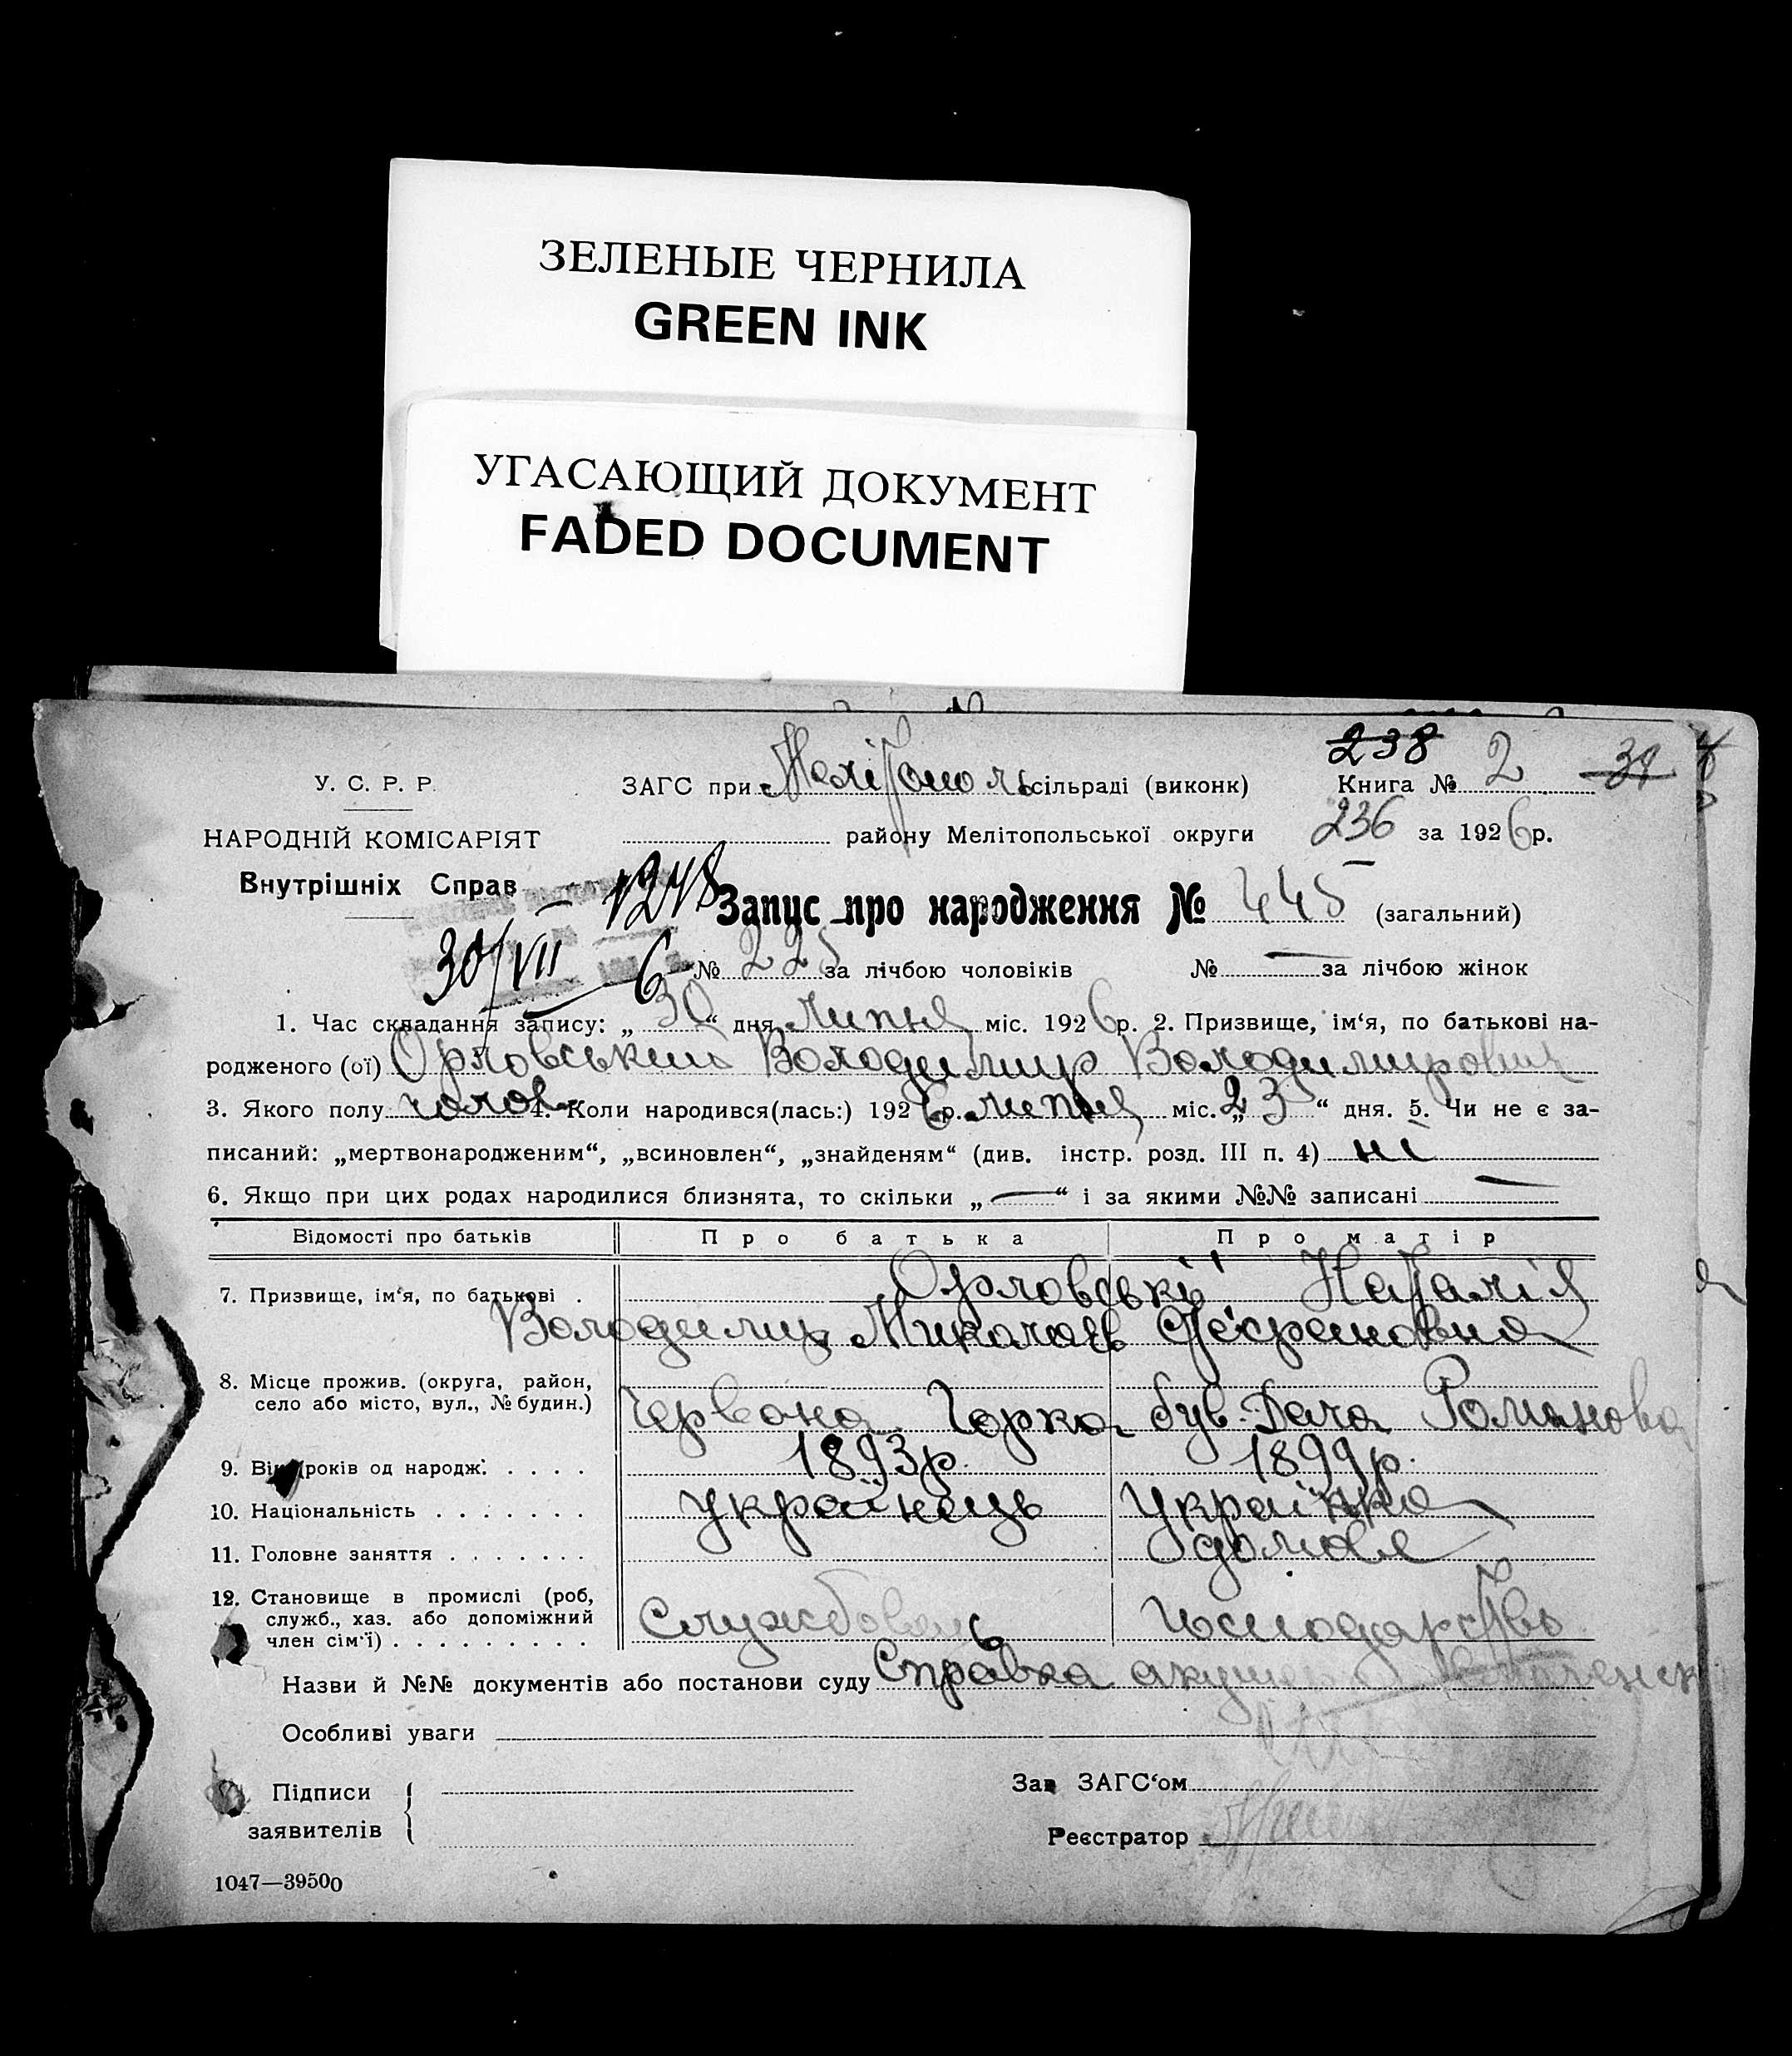 ЗЕЛЕНЫЕ ЧЕРНИЛА
GREEN INK
УГАСАЮЩИЙ ДОКУМЕНТ
FADED DOCUMENT
238
У. С. Р. Р. ЗАГС при Мелітополь сільраді (виконк) Книга № 2 34
НАРОДНІЙ КОМІСАРІЯТ району Мелітопольської округи 236 за 1926 р.
Внутрішніх Справ 1248 Запис про народження № 445 (загальний)
30/VII 6 № 225 за лічбою чоловіків № — за лічбою жінок
1. Час складання запису: „30“ дня липня міс. 1926 р. 2. Призвище, ім‘я, по батькові на-
родженого (ої) Орловський Володимир Володимирович
3. Якого полу чолов 4. Коли народився(лась:) 1926 р. липня міс. „23“ дня. 5. Чи не є за-
писаний: „мертвонародженим“, „всиновлен“, „знайденям“ (див. інстр. розд. III п. 4) ні
6. Якщо при цих родах народилися близнята, то скільки „—“ і за якими №№ записані —
Відомості про батьків Про батька Про матір
7. Призвище, ім‘я, по батькові . Орловські Наталія
Володимир Миколаєв
8. Місце прожив. (округа, район,
село або місто, вул., № будин.) Червона Горка був. Дача Романова
9. Вік, років од народж. . . . . 1893р. 1899р.
10. Національність . . . . . . . Українець Українка
11. Головне заняття . . . . . . . домове
12. Становище в промислі (роб,
служб., хаз. або допоміжний
член сім‘ї) . . . . . . . . . Службовець господарство
Назви й №№ документів або постанови суду Справка
Особливі уваги
Підписи
заявителів
Зав ЗАГС‘ом
Реєстратор
1047—39500